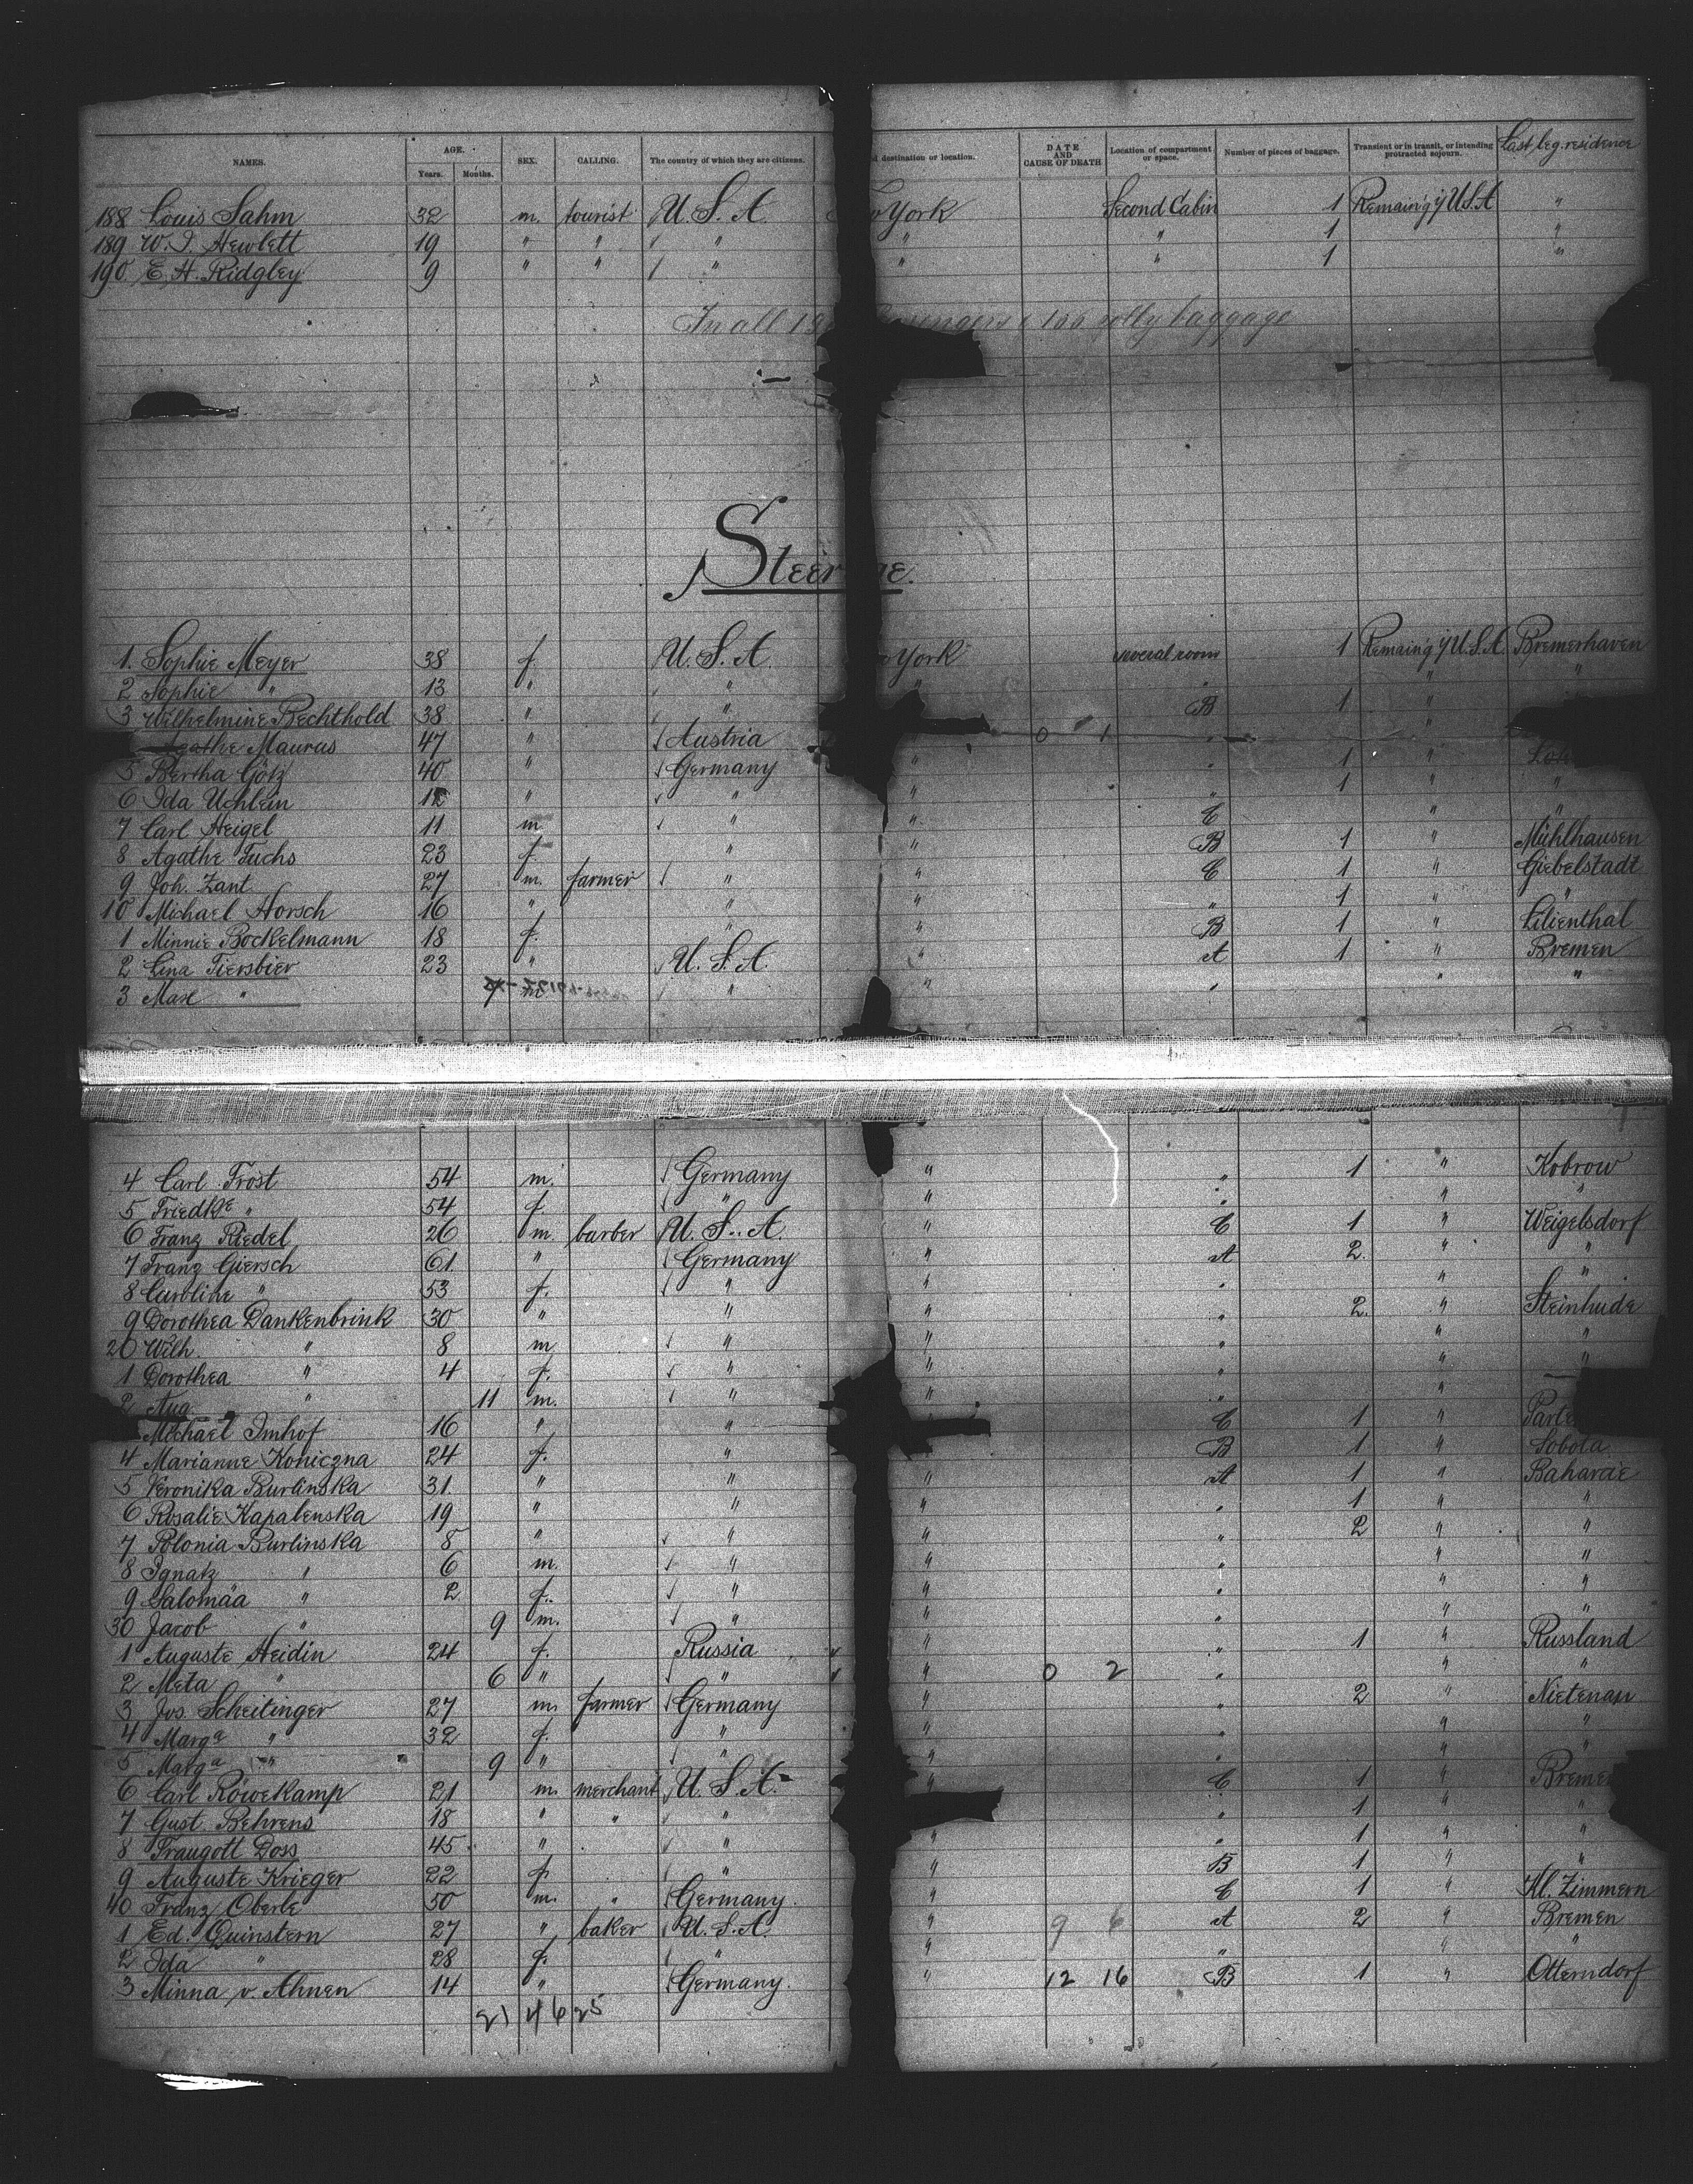 NAMES. AGE. Years. Months. SEX. CALLING. The country of which they are citizens. destination or location. DATE AND CAUSE OF DEATH Location of compartment or space. Number of pieces of baggage. Transient or in transit, or intending protracted sojourn. Last leg. residence
188 Louis Sahm 32 m. tourist U.S.A. York Second Cabin 1 Remain'g i/ U.S.A "
189 W. I. Hewlett 19 " " " " " 1 "
190 E. H. Ridgley 9 " " " " " 1 "
In all baggage
Steer e.
1. Sophie Meyer 38 f. U.S.A. York several room 1 Remaing i/ U.S.A. Bremerhaven
2 Sophie " 13 " " " " "
3 Wilhelmine Bechthold 38 " " B 1 "
Agathe Maurus 47 " Austria " 0 1 "
5 Bertha Götz 40 " Germany " " 1 "
6 Ida Uehlein " " " " 1 " "
7 Carl Heigel 11 m " " C " "
8 Agathe Fuchs 23 f. " " B 1 " Mühlhausen
9 Joh. Zant 27 m. farmer " " C 1 " Giebelstadt
10 Michael Horsch 16 " " " " 1 " "
1 Minnie Bockelmann 18 f. " " B 1 " Lilienthal
2 Lina Tiersbier 23 " U.S.A. " A 1 " Bremen
3 Max " " " " " "
4 Carl Frost 54 m. Germany " " 1 " Kobrow
5 Friedke " 54 f. " " " " "
6 Franz Riedel 26 m. barber U.S.A. " C 1 " Weigelsdorf
7 Franz Giersch 61. " Germany " A 2. " "
8 Caroline " 53 f. " " " " "
9 Dorothea Dankenbrink 30 " " " " 2. " Steinhude
20 Wilh. " 8 m " " " " "
1 Dorothea " 4 f. " " " " "
2 Aug. " 11 m. " " " "
Michael Imhof 16 " " " C 1 "
4 Marianne Koniczna 24 f. " " B 1 " Sobota
5 Veronika Burlinska 31. " " " A 1 " Baharcie
6 Rosalie Kapalenska 19 " " " " 1 " "
7 Polonia Burlinska 8 " " " " 2 " "
8 Ignatz " 6 m. " " " " "
9 Salomäa " 2 f. " " " " "
30 Jacob " 9 m. " " " " "
1 Auguste Heidin 24 f. Russia " " 1 " Russland
2 Meta " 6 " " " 0 2 " " "
3 Jos. Scheitinger 27 m. farmer Germany " " 2 " Nietenau
4 Marga " 32 f. " " " " "
5 Marga " 9 " " " " " "
6 Carl Röwekamp 21 m. merchant U.S.A. " C 1 " Breme
7 Gust. Behrens 18 " " " " 1 " "
8 Traugott Doss 45 " " " " 1 " "
9 Auguste Krieger 22 f. " " B 1 " "
40 Franz Oberle 50 m. " Germany. " C 1 " Kl. Zimmern
1 Ed. Quinstern 27 " baker U.S.A. " 9 6 A 2 " Bremen
2 Ida " 28 f. " " " " "
3 Minna v. Ahnen 14 " Germany. " 12 16 B 1 " Otterndorf